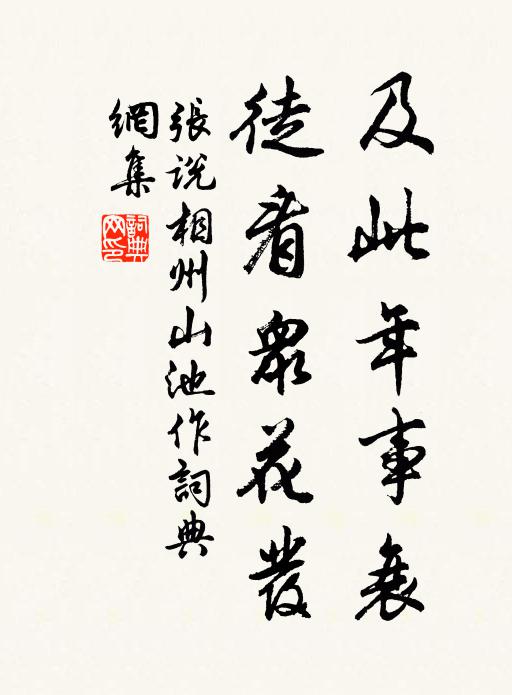 及此年事衰
徒看衆花發
張說相州山池作詞典
網集
詞典網印